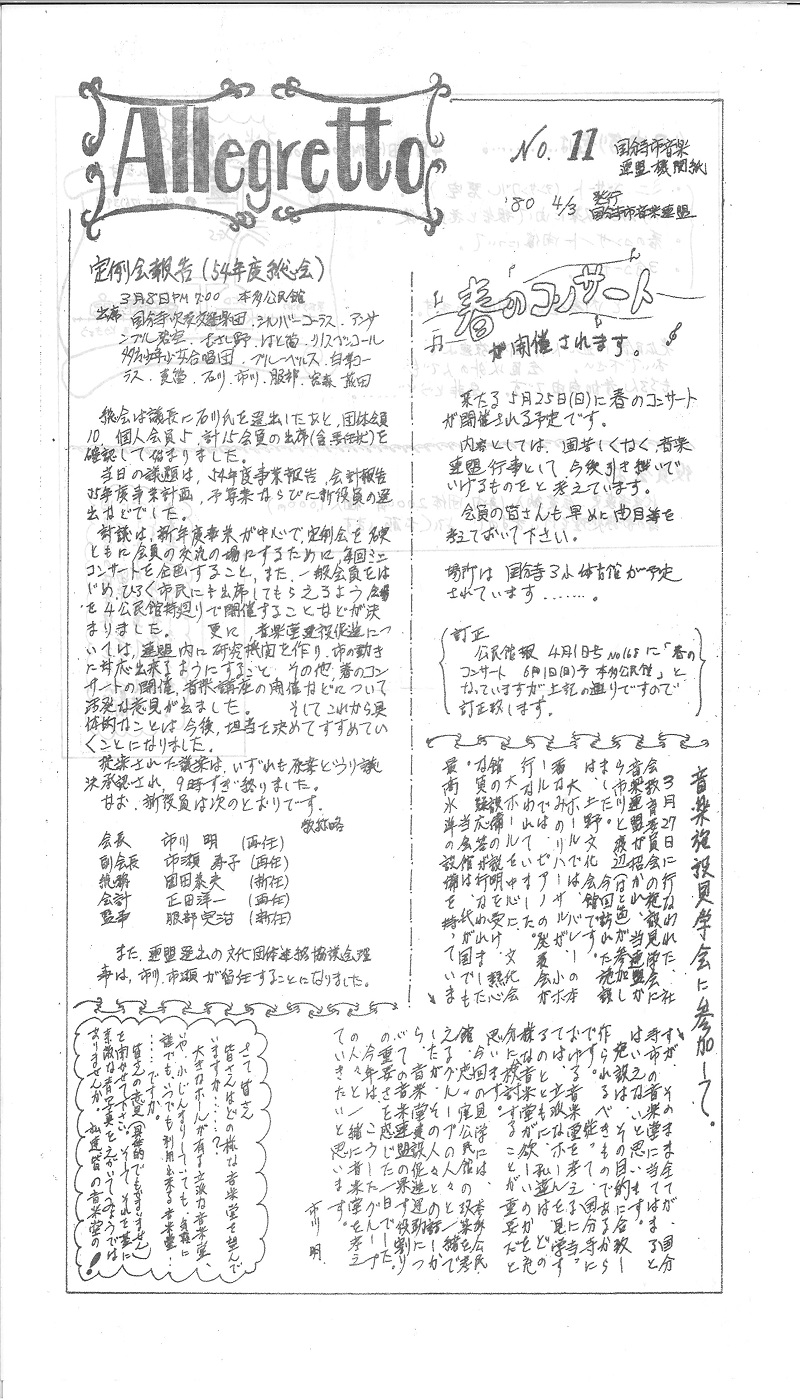 Allegretto
No. 11
国分寺市音楽
連盟機関紙
'80 4/3
発行
国分寺市音楽連盟
定例会報告(54年度総会)
3月8日PM7:00 本多公民館
出席 国分寺 シルバーコーラス・アンサ
ンブル むさし野・はと笛・リスペッコール
少年少女合唱団・ブルーベルス・白峯コー
ラス 石川・市川・服部
総会は議長に石川氏を選出したあと、団体会員
10、個人会員5、計15会員の出席(含、委任状)を
確認して始まりました。
当日の議題は、54年度事業報告、会計報告
55年度事業計画、予算案ならびに新役員の選
出などでした。
討議は、新年度事業が中心で、定例会を
ともに会員の交流の場にするために、毎回ミニ
コンサートを企画すること、また、一般会員をは
じめ、ひろく市民にも出席してもらえるよう、会場
を4公民館持廻りで開催することなどが決
まりました。 更に、音楽堂建設促進につ
いては、連盟内に研究機関を作り、市の動き
に対応出来るようにすること、その他、春のコン
サートの開催、音楽講座の開催などについて
活発な意見が出ました。 そしてこれから具
体的なことは今後、担当を決めてすすめてい
くことになりました。
提案された議案は、いずれも原案どうり議
決承認され、9時すぎ終りました。
なお、新役員は次のとおりです。
敬称略
会長 市川 明 (再任)
副会長 市瀬 寿子 (再任)
総務 園田 (新任)
会計 正田洋一 (再任)
監事 服部 (新任)
また、連盟選出の文化団体連絡協議会理
事は、市川、市瀬が留任することになりました。
春のコンサート
が開催されます。
来たる5月25日(日)に春のコンサート
が開催される予定です。
内容としては、固苦しくなく、音楽
連盟行事として、今後引き継いで
いけるものをと考えています。
会員の皆さんも早めに曲目等を
考えておいて下さい。
場所は国分寺3小体育館が予定
されています・・・・・・。
訂正
公民館報 4月1日号 No168に「春の
コンサート 6月1日(日)予 本多公民館」と
なっていますが、上記の通りですので
訂正致します。
音楽施設見学会に参加して。
3月27日に行なわれた、社
会教育委員会の施設見学会に
音楽連盟が招かれ、当連盟か
ら市川と渡辺(はと笛)が参加し
ました。 今回訪れた施設
は、上野文化会館です。
大ホールでは、バレーの本
番なみのリハーサル、小ホ
ールでは、ピアノの発表会が
行なわれていました。
大ホールを中心に、文化会
館の設備の説明を受け、熱心
な質疑応答が行なわれました。
当会館は、現代が国
最高水準の設備を持っていま
すが、そのまま全てが、国分
寺市の音楽堂に当てはまると
はいえないと思います。
施設は、その目的に合致し
作られるべきものであるから
です。従って、国分寺に
おける音楽堂を考えるに
ては、立派なホールを見学す
るのとともに、私達は、どの
様な音楽堂が欲しいのかを充
分に検討することが重要だと
思います。
今回の見学には、本多公民
館、恋ヶ窪公民館の
えるグループの人々と一緒で
したが、その人々との話しか
ら、音楽堂建設促進運動につ
いての音楽連盟の果す役割り
の重要さを感じた一日でした。
今年は、こうしたグループ
の人々と一緒に音楽堂を考え
ていきたいと思います。
市川 明
さて皆さん
皆さんはどの様な音楽堂を望んで
いますか・・・・・?
大きなホールが有る立派な音楽堂、
いや、小じんまりしていても、気軽に
誰でもいつでも利用出来る音楽堂・
・・・・ですか。
皆さんの意見(具体的でもかまいません)
を聞かせて下さい。そして、それを基に
素敵な青写真をえがいてみようでは
ありませんか。私達皆の音楽堂の!